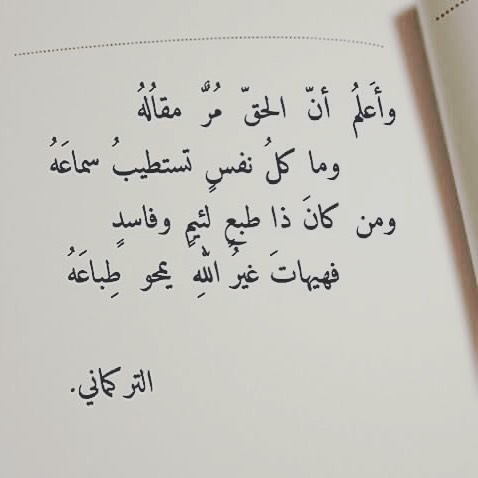 وأَعلمُ أنّ الحقّ مُرٌّ مقالُهُ
وما كلُ نفسٍ تستطيبُ سماعَهُ
ومن كانَ ذا طبعٍ لئيمٍ وفاسدٍ
فهيهاتَ غيرُ اللّٰهِ يمحو طِباعَهُ
التركماني.